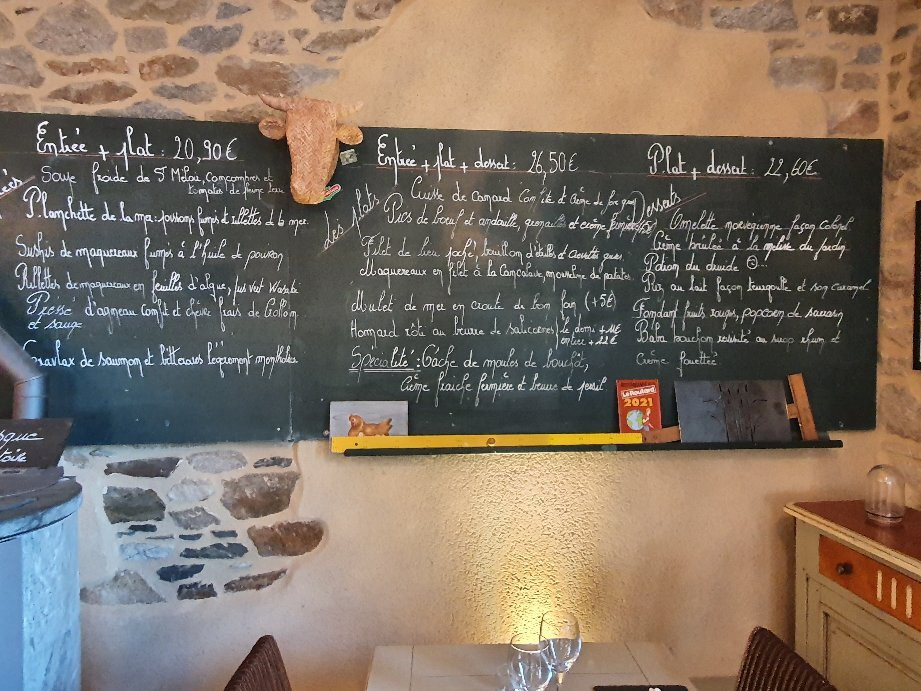 Entrée + plat : 20,90€
Soupe froide de St Méloir, Concombres et
tomates de
Planchette de la mer : poissons fumés et rillettes de la mer
Sushis de maquereaux fumés à l'huile de
Rillettes de maquereaux en feuilles d'algue, jus vert Wasabi
Pressé d'agneau confit et chèvre frais de
et sauge
Gravlax de saumon et betteraves légèrement mentholées
Entrée + plat + dessert : 26,50€
Les plats
Cuisse de canard confite et crème de foie gras
Pics de boeuf et andouille, grenailles et crème fermière
Filet de lieu poché, bouillon d'étrilles et
Maquereaux en filet à la Cancalaise, mousseline de patates
Mulet de mer en croute de bon foin (+5€)
Homard rôti au beurre de salicornes
le demi +11€
entier +22€
Spécialité : Gâche de moules de bouchot,
Crème fraiche fermière et beurre de persil
Plat + dessert : 22,60€
Desserts
Omelette norvégienne façon Colonel
Crème brulée à la mélisse du jardin
Potion du druide ...
Riz au lait façon teurgoule et son caramel
Fondant fruits rouges, popcorn de sarrasin
Baba bouchon revisité au sirop rhum et
Crème fouettée
Le Routard
2021